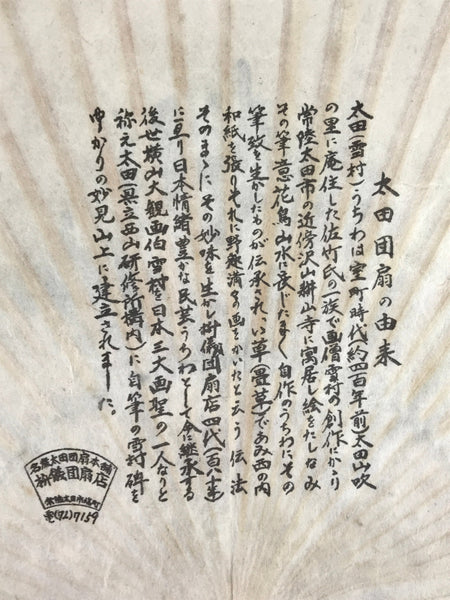 太田団扇の由来
太田(雪村)うちわは室町時代(約四百年前)太田山吹
の里に庵住した佐竹氏の一族で画僧雪村の創作にかゝり
常陸太田市の近傍沢山耕山寺に寓居し絵をたしなみ
その筆意花鳥山水に長じたまく自作のうちわにその
筆致を生かしたものが伝承されい草(畳草)であみ西の内
和紙を張りそれに野趣満々画をかいたと云う伝法
そのまゝに その妙味を生かし樹儀団扇店四代(百八十年)
に亘り日本情緒豊かな民芸うちわとして今に継承する
後世横山大観画伯雪村を日本三大画聖の一人なりと
称え太田(県立西山研修所構内)に自筆の雪村碑を
ゆかりの妙見山上に建立されました。
名産太田団扇本舗
樹儀団扇店
常陸太田市
電(72)7159